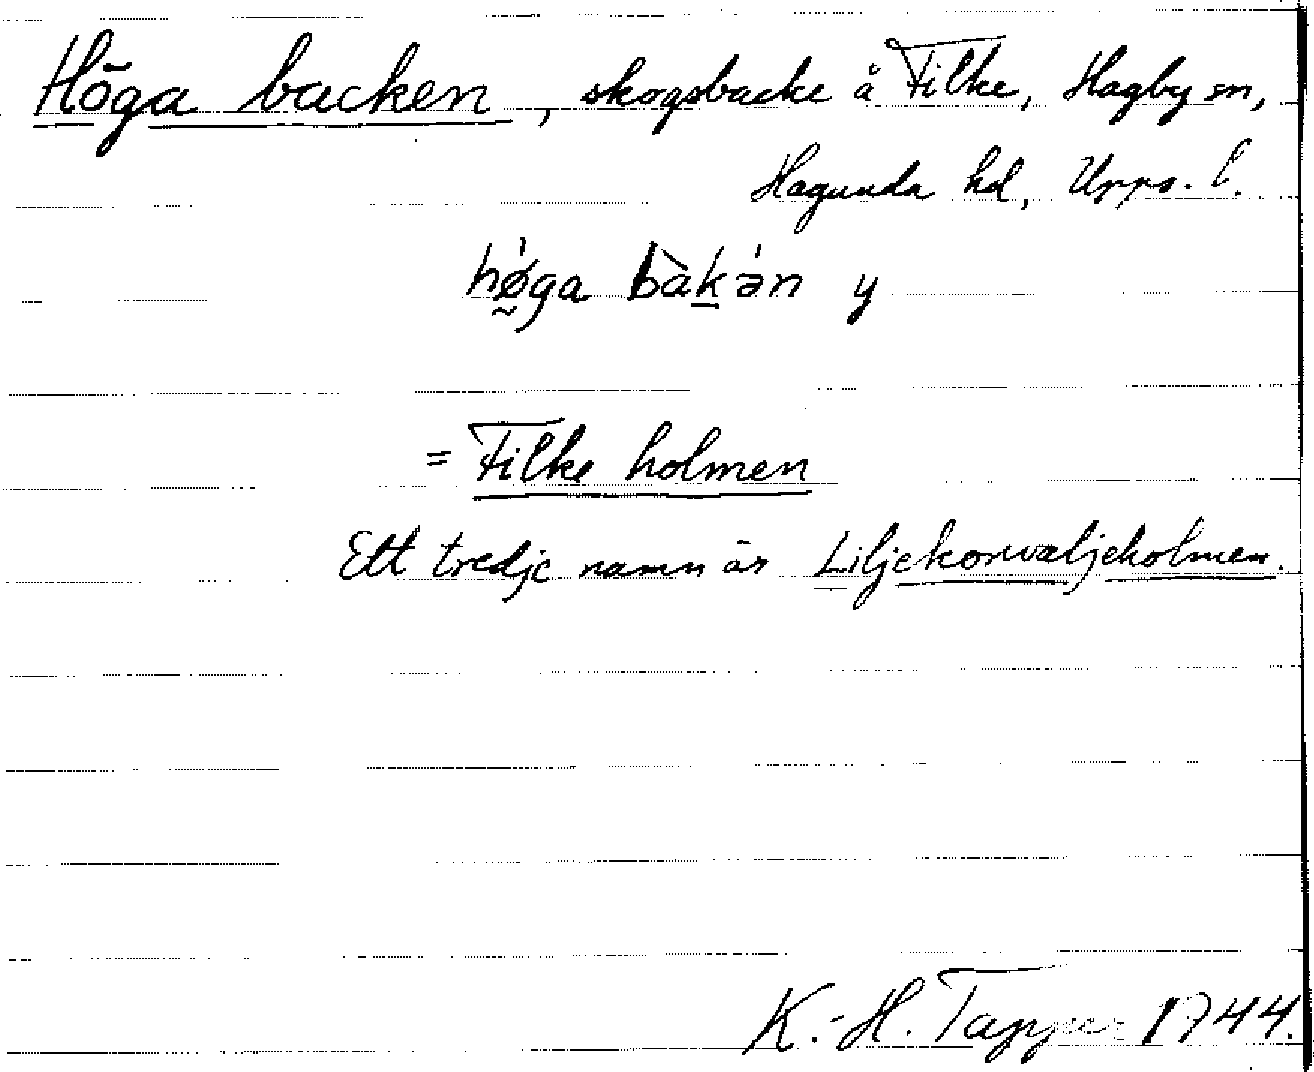 Höga backen, skogsbacke å Filke, Hagby sn,
Hagunda hd, Upps. l.
hø̀ga bàkə́n y
= Filke holmen
Ett tredje namn är Liljekonvaljeholmen.
K.-H. Tapper 1944.